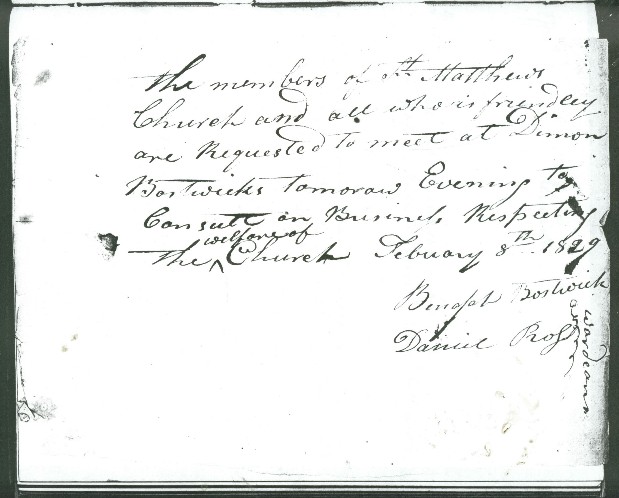 the members of St Matthews
Church and all who is friendley
are Requested to meet at Dimon
Bostwicks tomoraw Evening to
Consult on Business Respecting
welfare of
the ^ Church Febuary 8th 1829
Bostwick
Daniel Ross
wardeans